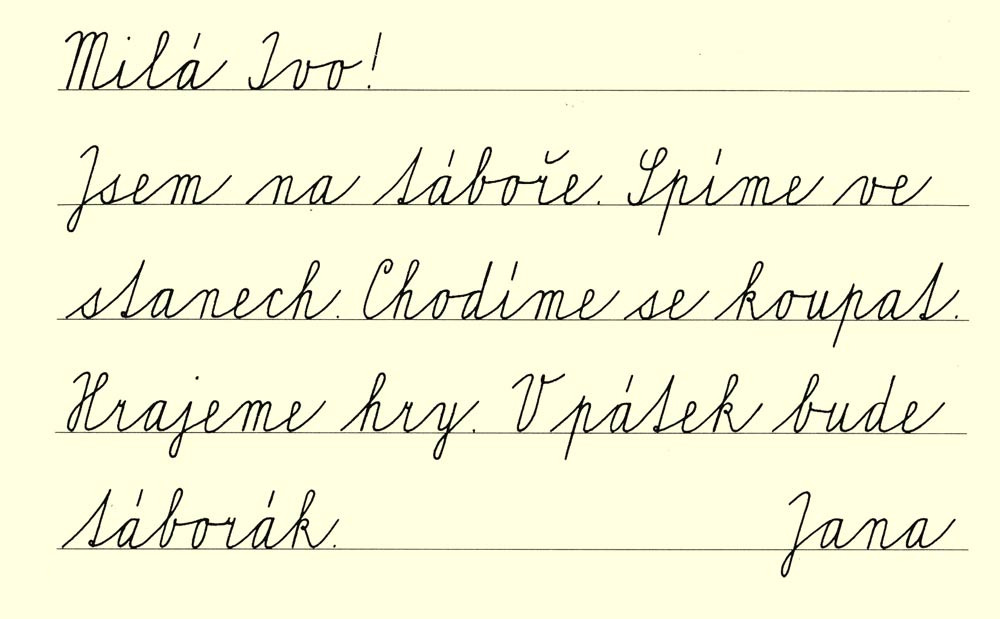 Milá Ivo!
Jsem na táboře. Spíme ve
stanech. Chodíme se koupat.
Hrajeme hry. V pátek bude
táborák. Jana